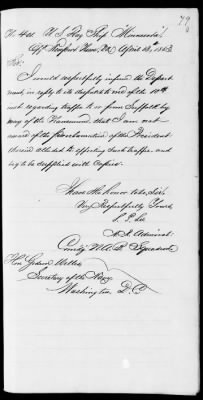 79
No. 421. U. S. Flag Ship Minnesota
Off Newport News, Va. April 13th 1863
Sir:
I would respectfully inform the Depart
ment, in reply to its despatch to me of the 10th
inst. regarding traffic to or from Suffolk by
way of the Nansemond, that I am not
aware of the Proclamation of the President
therein alluded to affecting such traffic, and
beg to be supplied with Copies.
I have the honor to be, Sir,
Very Respectfully Yours,
S. P. Lee
A. R. Admiral
Comd'g N. A. B. Squadron
Hon. Gideon Welles
Secretary of the Navy
Washington, D. C.